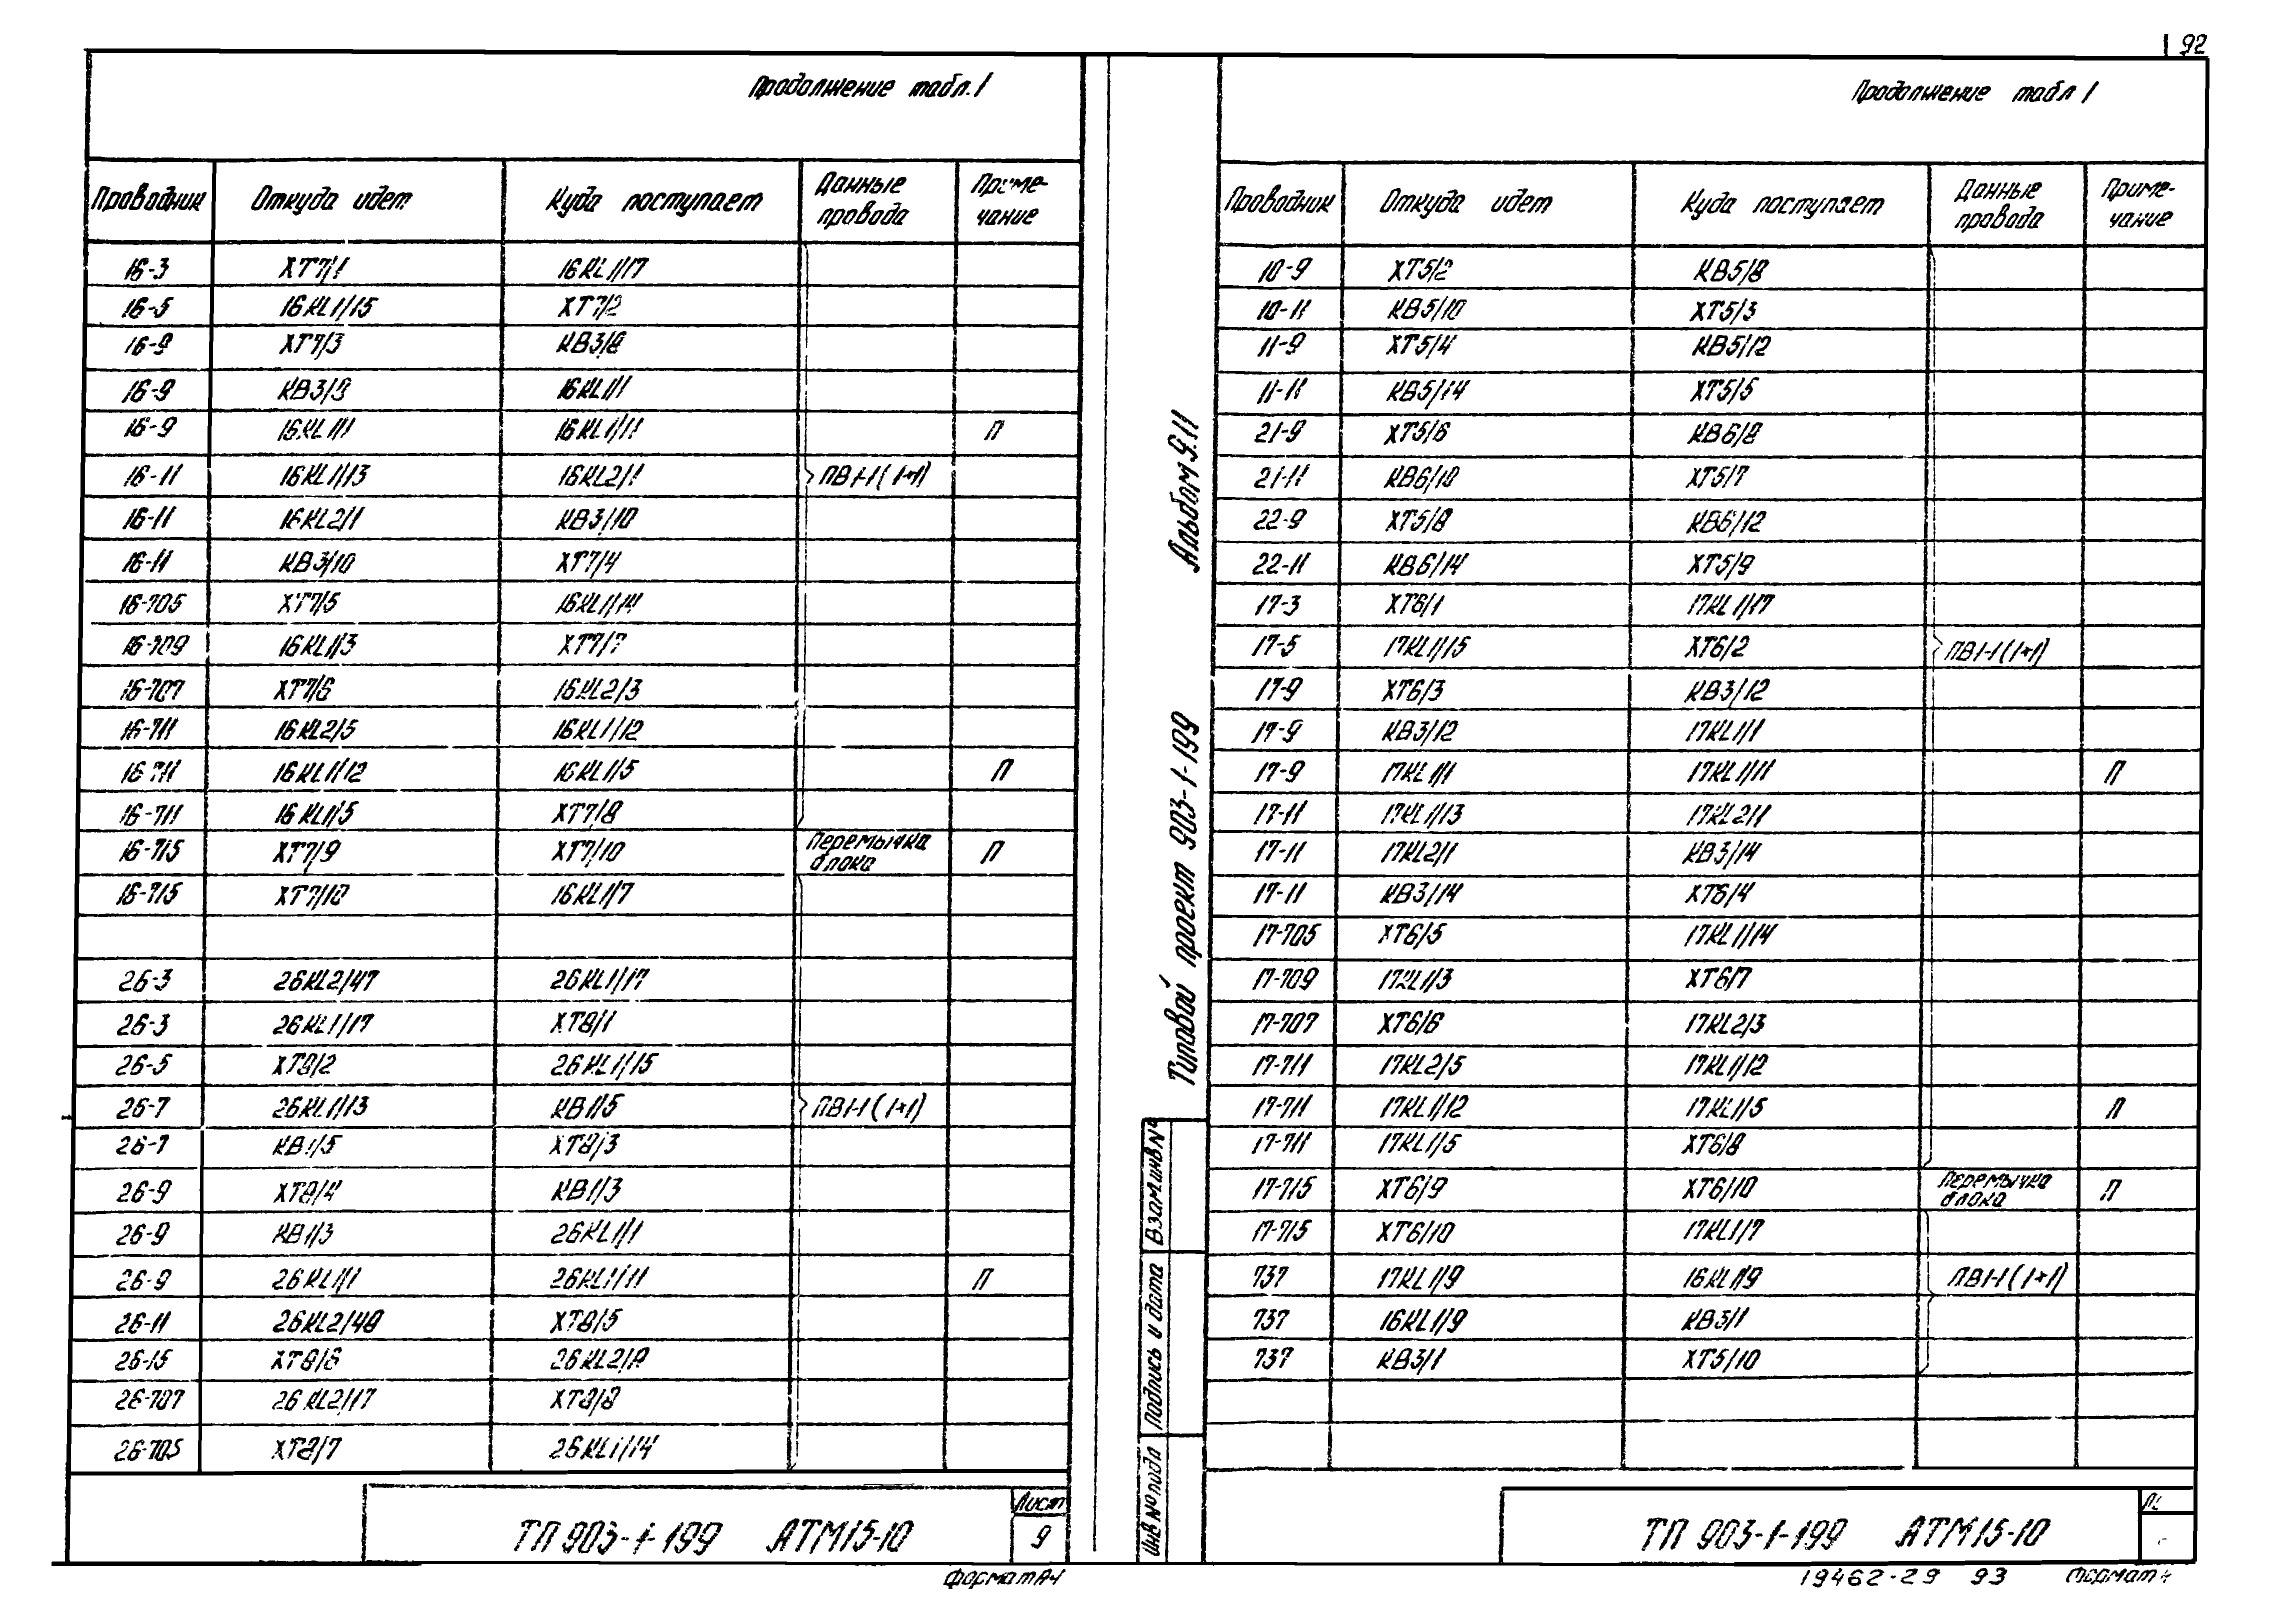 92
Продолжение табл.1
Проводник Откуда идет Куда поступает Данные провода Примечание
16-3 XT7/1 16KL1/17
16-5 16KL1/15 XT7/2
16-9 XT7/3 KB3/8
16-9 KB3/8 16KL1/1
16-9 16KL1/1 16KL1/11 П
16-11 16KL1/13 16KL2/1 ПВ1-1 (1×1)
16-11 16KL2/1 KB3/10
16-11 KB3/10 XT7/4
16-705 XT7/5 16KL1/14
16-709 16KL1/3 XT7/7
16-707 XT7/6 16KL2/3
16-711 16KL2/5 16KL1/12
16-711 16KL1/12 16KL1/5 П
16-711 16KL1/5 XT7/8
16-715 XT7/9 XT7/10 Перемычка блока П
16-715 XT7/10 16KL1/7
26-3 26KL2/47 26KL1/17
26-3 26KL1/17 XT8/1
26-5 XT8/2 26KL1/15
26-7 26KL1/13 KB1/5 ПВ1-1 (1×1)
26-7 KB1/5 XT8/3
26-9 XT8/4 KB1/3
26-9 KB1/3 26KL1/1
26-9 26KL1/1 26KL1/11 П
26-11 26KL2/48 XT8/5
26-15 XT8/6 26KL2/8
26-707 26KL2/17 XT8/8
26-705 XT8/7 26KL1/14
ТП 903-1-199 АТМ15-10
Лист
9
Формат А4
Продолжение табл 1
Проводник Откуда идет Куда поступает Данные провода Примечание
10-9 XT5/2 KB5/8
10-11 KB5/10 XT5/3
11-9 XT5/4 KB5/12
11-11 KB5/14 XT5/5
21-9 XT5/6 KB6/8
21-11 KB6/10 XT5/7
22-9 XT5/8 KB6/12
22-11 KB6/14 XT5/9
17-3 XT6/1 17KL1/17
17-5 17KL1/15 XT6/2 ПВ1-1 (1×1)
17-9 XT6/3 KB3/12
17-9 KB3/12 17KL1/1
17-9 17KL1/1 17KL1/11 П
17-11 17KL1/13 17KL2/1
17-11 17KL2/1 KB3/14
17-11 KB3/14 XT6/4
17-705 XT6/5 17KL1/14
17-709 17KL1/3 XT6/7
17-707 XT6/6 17KL2/3
17-711 17KL2/5 17KL1/12
17-711 17KL1/12 17KL1/5 П
17-711 17KL1/5 XT6/8
17-715 XT6/9 XT6/10 Перемычка блока П
17-715 XT6/10 17KL1/7
737 17KL1/9 16KL1/9 ПВ1-1 (1×1)
737 16KL1/9 KB3/1
737 KB3/1 XT5/10
Альбом 9.11
Типовой проект 903-1-199
Взам инв №
Подпись и дата
Инв № подл
ТП 903-1-199 АТМ15-10
19462-29 93
Формат